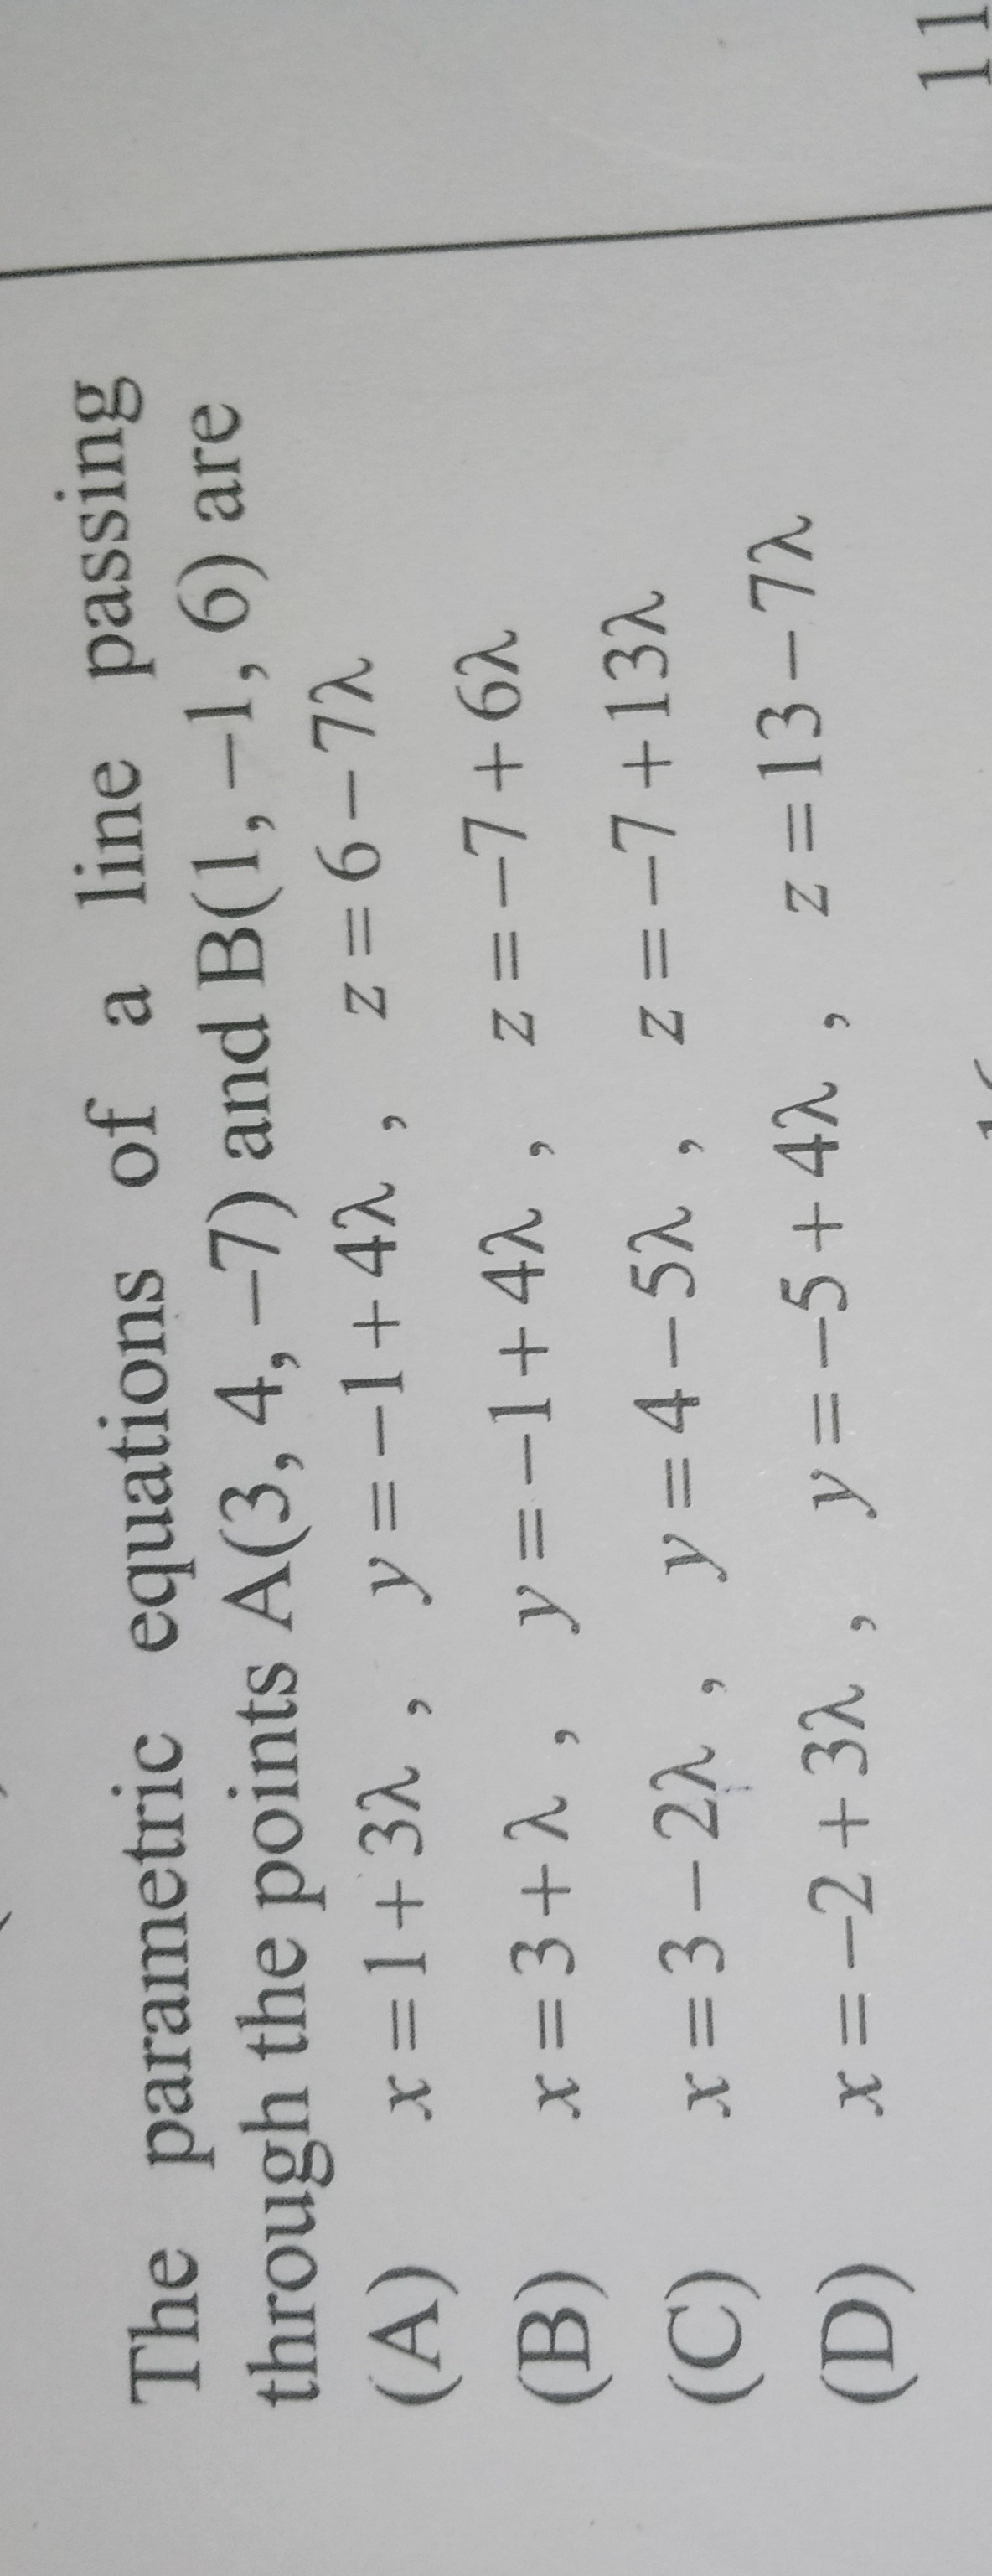 The parametric equations of a line passing
through the points A(3, 4, −7) and B(1, −1, 6) are
(A) x = 1 + 3λ , y = −1 + 4λ , z = 6 − 7λ
(B) x = 3 + λ , y = −1 + 4λ , z = −7 + 6λ
(C) x = 3 − 2λ , y = 4 − 5λ , z = −7 + 13λ
(D) x = −2 + 3λ , y = −5 + 4λ , z = 13 − 7λ
11